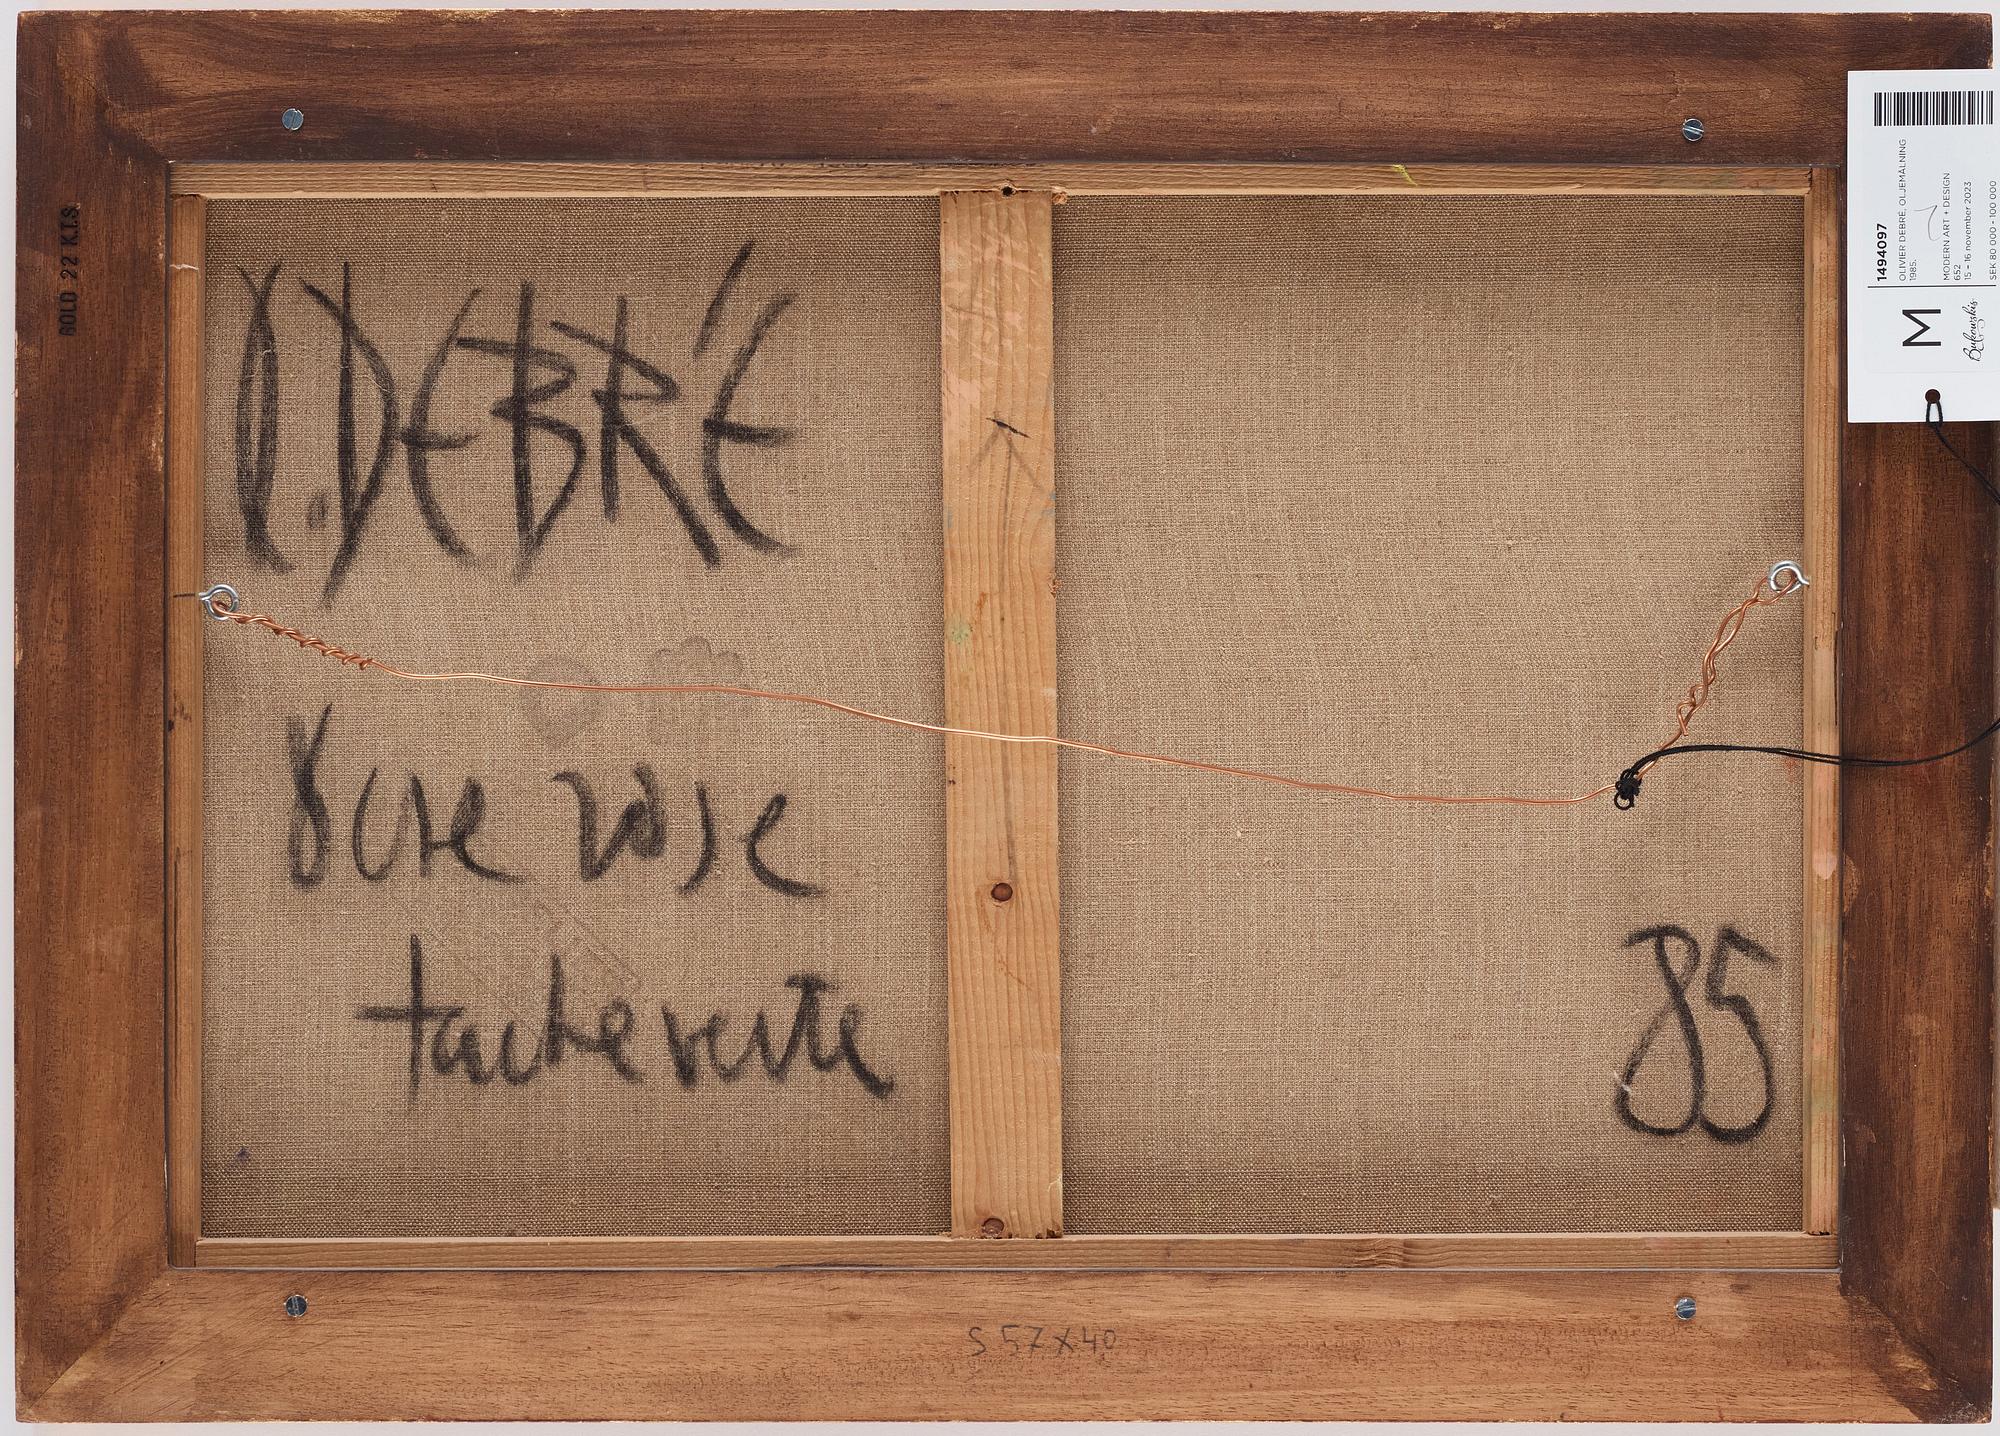 O.DEBRÉ
Ocre rose
tache verte
85
S 57 X 40
GOLD 22 K.T.S.
1494097
OLIVIER DEBRÉ, OLJEMÅLNING
1985.
MODERN ART + DESIGN
652
15 - 16 november 2023
SEK 80 000 - 100 000
M
Bukowskis